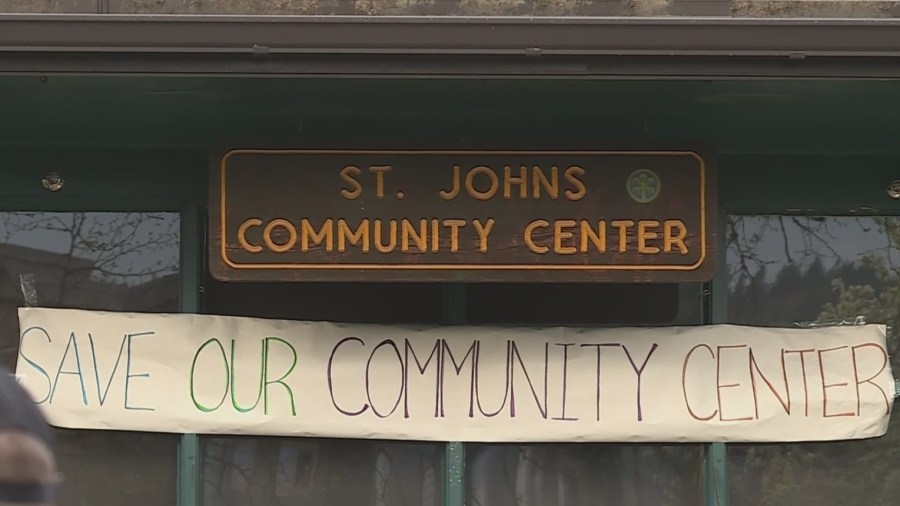 ST. JOHNS
COMMUNITY CENTER
SAVE OUR COMMUNITY CENTER